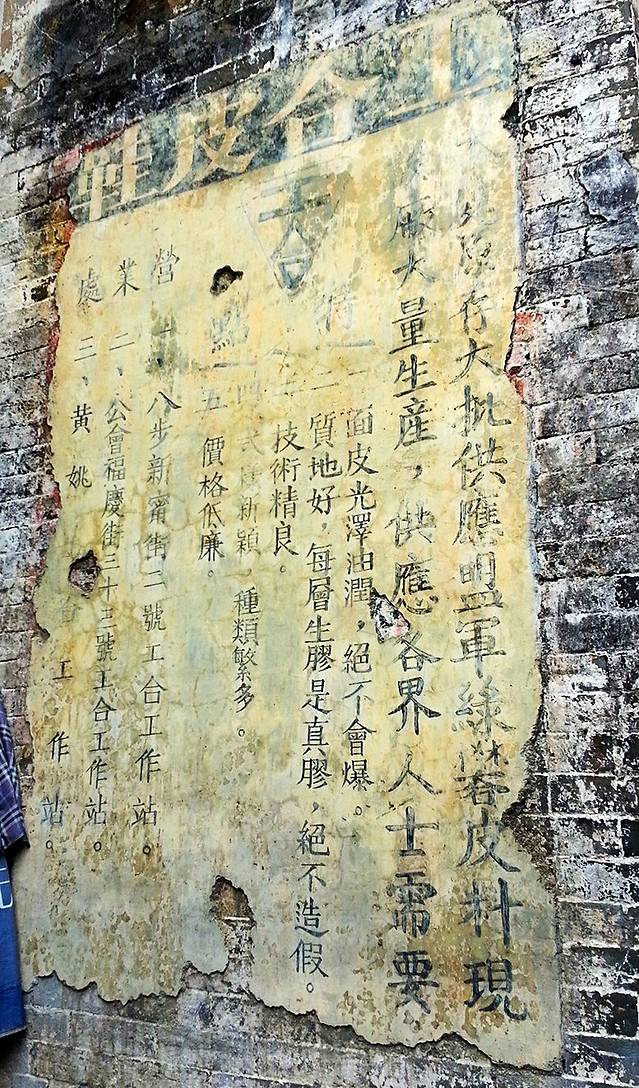 工合皮鞋
工合
存大批供應盟軍綠皮料現
廠大量生產，供應各界人士需要
特點
一 面皮光澤油潤，絕不會爆。
二 質地好，每層生膠是真膠，絕不造假。
三 技術精良。
四 式樣新穎，種類繁多。
五 價格低廉。
營業處
一、八步新甯街二號工合工作站。
二、公會福慶街三十三號工合工作站。
三、黃姚 合工作站。